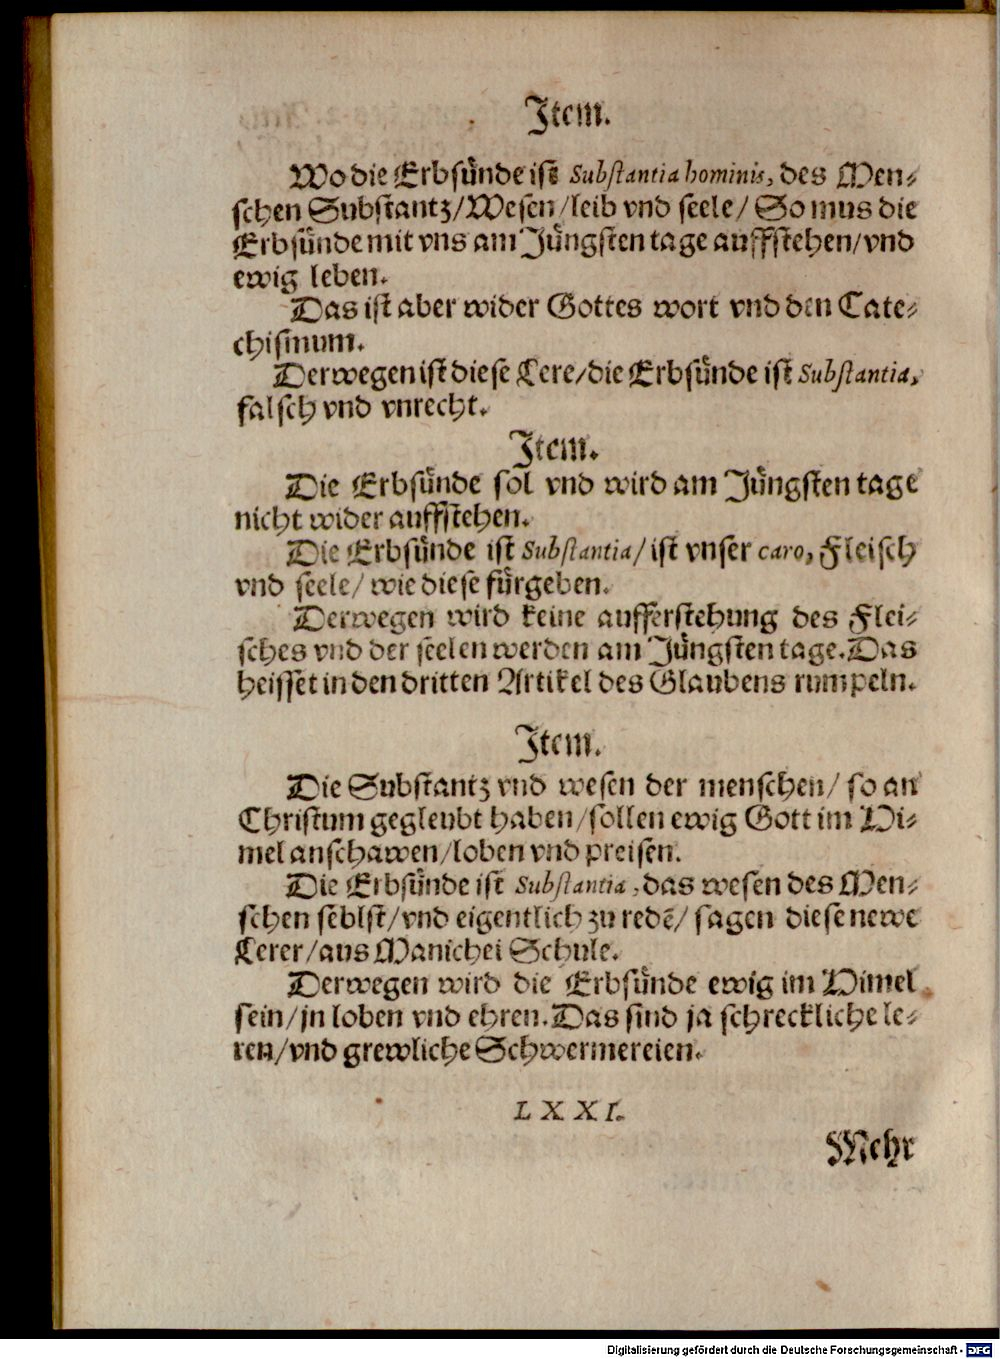 Item.
Wo die Erbsünde ist Substantia hominis, des Men-
schen Substantz/Wesen/leib vnd seele/ So mus die
Erbsünde mit vns am Jüngsten tage auffstehen/vnd
ewig leben.
Das ist aber wider Gottes wort vnd den Cate-
chismum.
Derwegen ist diese Lere/die Erbsünde ist Substantia,
falsch vnd vnrecht.
Item.
Die Erbsünde sol vnd wird am Jüngsten tage
nicht wider auffstehen.
Die Erbsünde ist Substantia/ ist vnser caro, Fleisch
vnd seele/ wie diese fürgeben.
Derwegen wird keine aufferstehung des Flei-
sches vnd der seelen werden am Jüngsten tage. Das
heisset in den dritten Artikel des Glaubens rumpeln.
Item.
Die Substantz vnd wesen der menschen/ so an
Christum gegleubt haben/sollen ewig Gott im Hi-
mel anschawen/loben vnd preisen.
Die Erbsünde ist Substantia, das wesen des Men-
schen seblst/vnd eigentlich zu redē/ sagen diese newe
Lerer/aus Manichei Schule.
Derwegen wird die Erbsünde ewig im Himel
sein/jn loben vnd ehren. Das sind ja schreckliche le-
ren/vnd grewliche Schwermereien.
LXXI.
Mehr
Digitalisierung gefördert durch die Deutsche Forschungsgemeinschaft - DFG